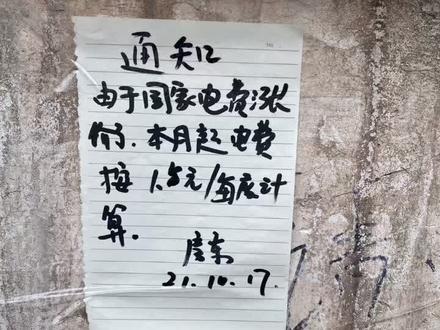 通知
由于国家电费涨
价.本月起电费
按1.5元/每度计
算.
房东
21.10.17.